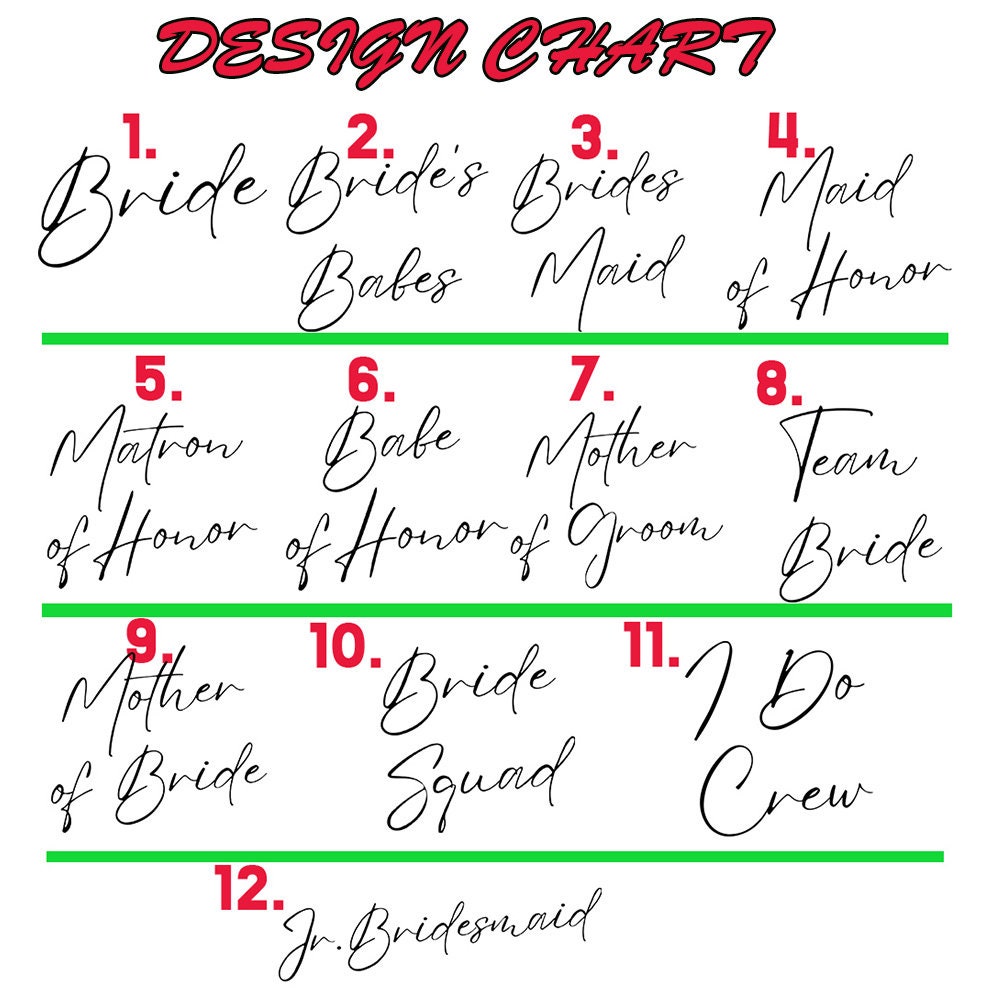 DESIGN CHART
1.
Bride
2.
Bride's
Babes
3.
Brides
Maid
4.
Maid
of Honor
5.
Matron
of Honor
6.
Babe
of Honor
7.
Mother
of Groom
8.
Team
Bride
9.
Mother
of Bride
10.
Bride
Squad
11.
I Do
Crew
12.
Jr. Bridesmaid